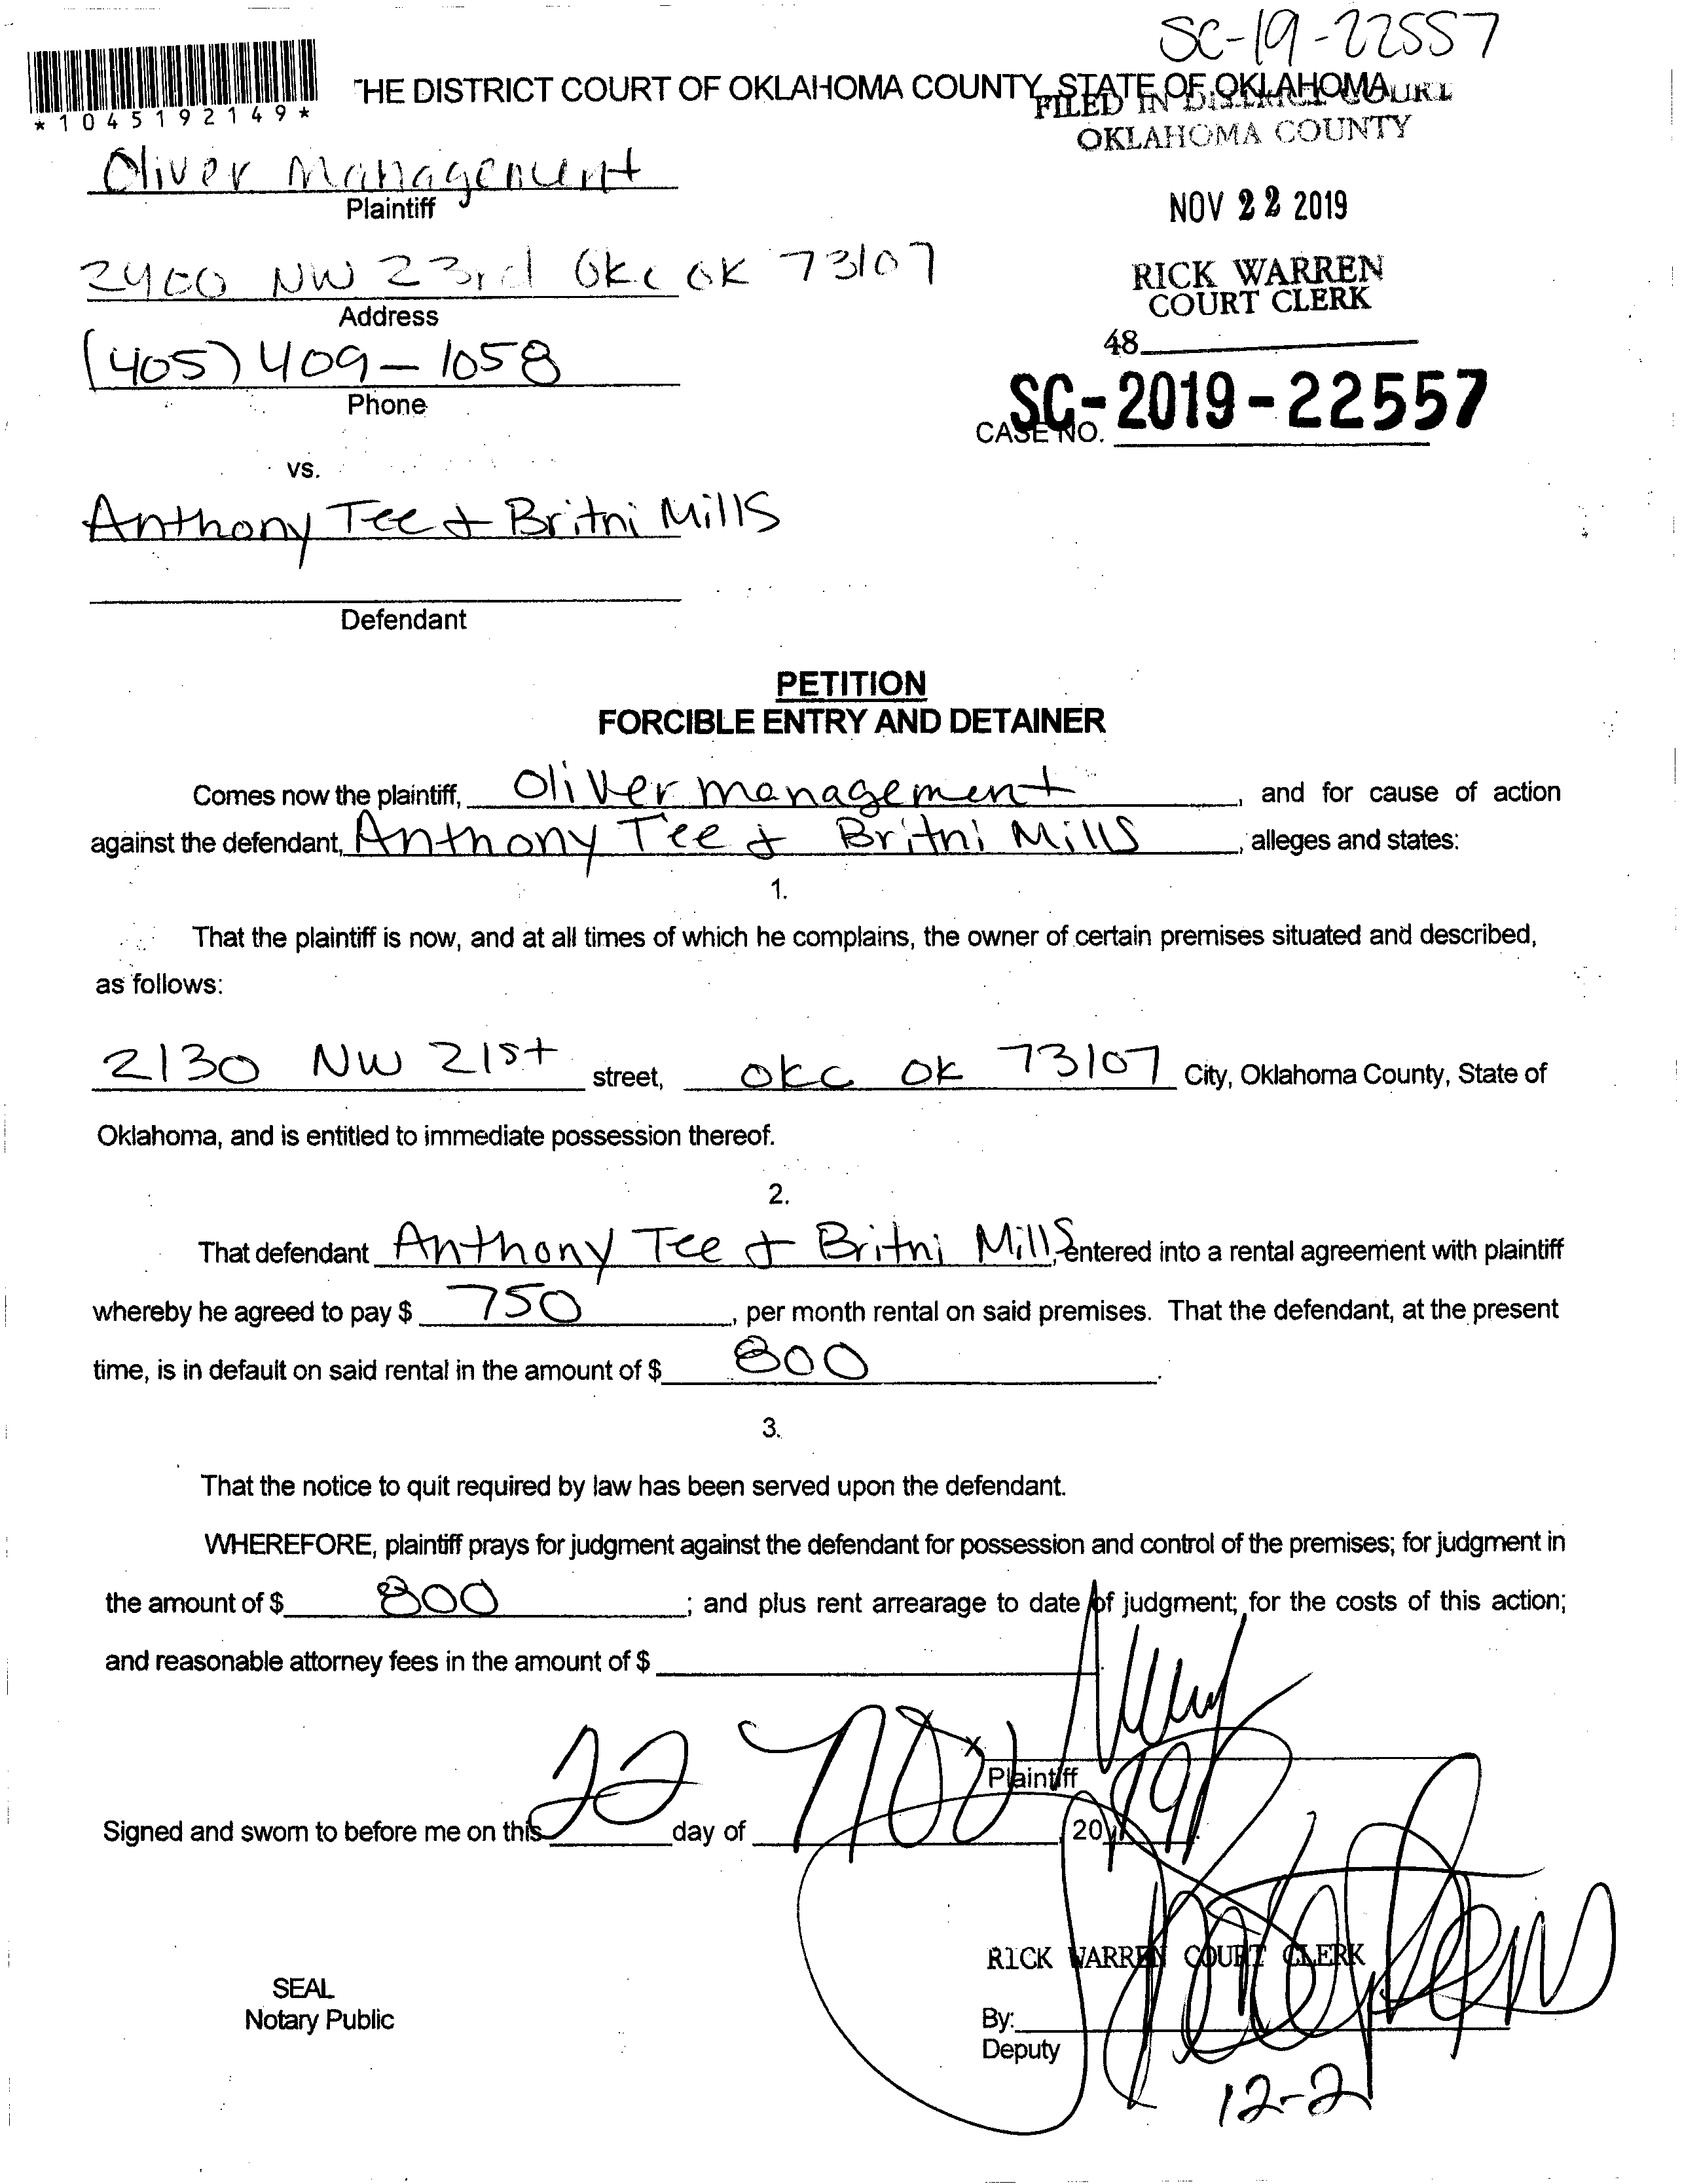 SC-19-22557
THE DISTRICT COURT OF OKLAHOMA COUNTY, STATE OF OKLAHOMA
*1045192149*
FILED IN DISTRICT COURT
OKLAHOMA COUNTY
Oliver Management
Plaintiff
NOV 22 2019
2400 NW 23rd Okc OK 73107
Address
RICK WARREN
COURT CLERK
(405) 409-1058
Phone
48
SC-2019-22557
CASE NO.
vs.
Anthony Tee & Britni Mills
Defendant
PETITION
FORCIBLE ENTRY AND DETAINER
Comes now the plaintiff, Oliver management, and for cause of action
against the defendant, Anthony Tee & Britni Mills, alleges and states:
1.
That the plaintiff is now, and at all times of which he complains, the owner of certain premises situated and described,
as follows:
2130 NW 21st street, OKC OK 73107 City, Oklahoma County, State of
Oklahoma, and is entitled to immediate possession thereof.
2.
That defendant Anthony Tee & Britni Mills, entered into a rental agreement with plaintiff
whereby he agreed to pay $ 750, per month rental on said premises. That the defendant, at the present
time, is in default on said rental in the amount of $ 800.
3.
That the notice to quit required by law has been served upon the defendant.
WHEREFORE, plaintiff prays for judgment against the defendant for possession and control of the premises; for judgment in
the amount of $ 800; and plus rent arrearage to date of judgment; for the costs of this action;
and reasonable attorney fees in the amount of $
X
Plaintiff
Signed and sworn to before me on this 22 day of Nov, 2019.
RICK WARREN COURT CLERK
SEAL
Notary Public
By:
Deputy
12-2